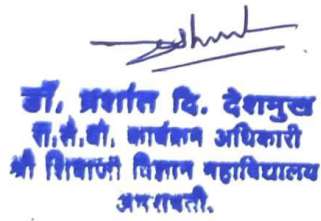 डॉ. प्रशांत दि. देशमुख
रा.से.यो. कार्यक्रम अधिकारी
श्री शिवाजी विज्ञान महाविद्यालय
अमरावती.